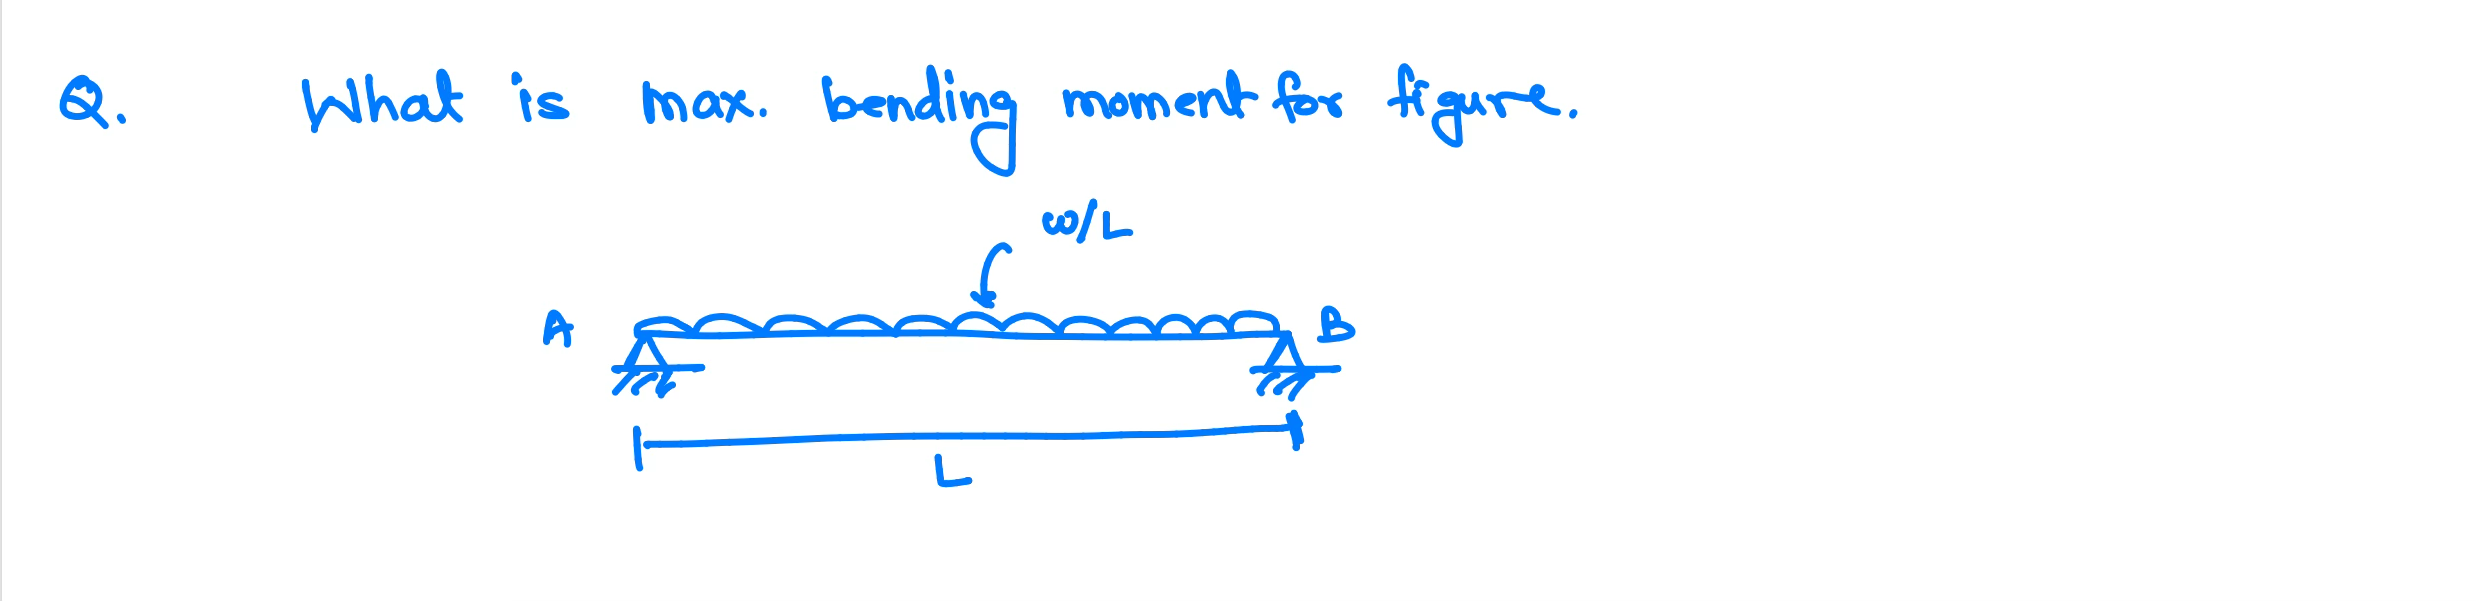 Q. What is max. bending moment for figure.
ω/L
A B
L